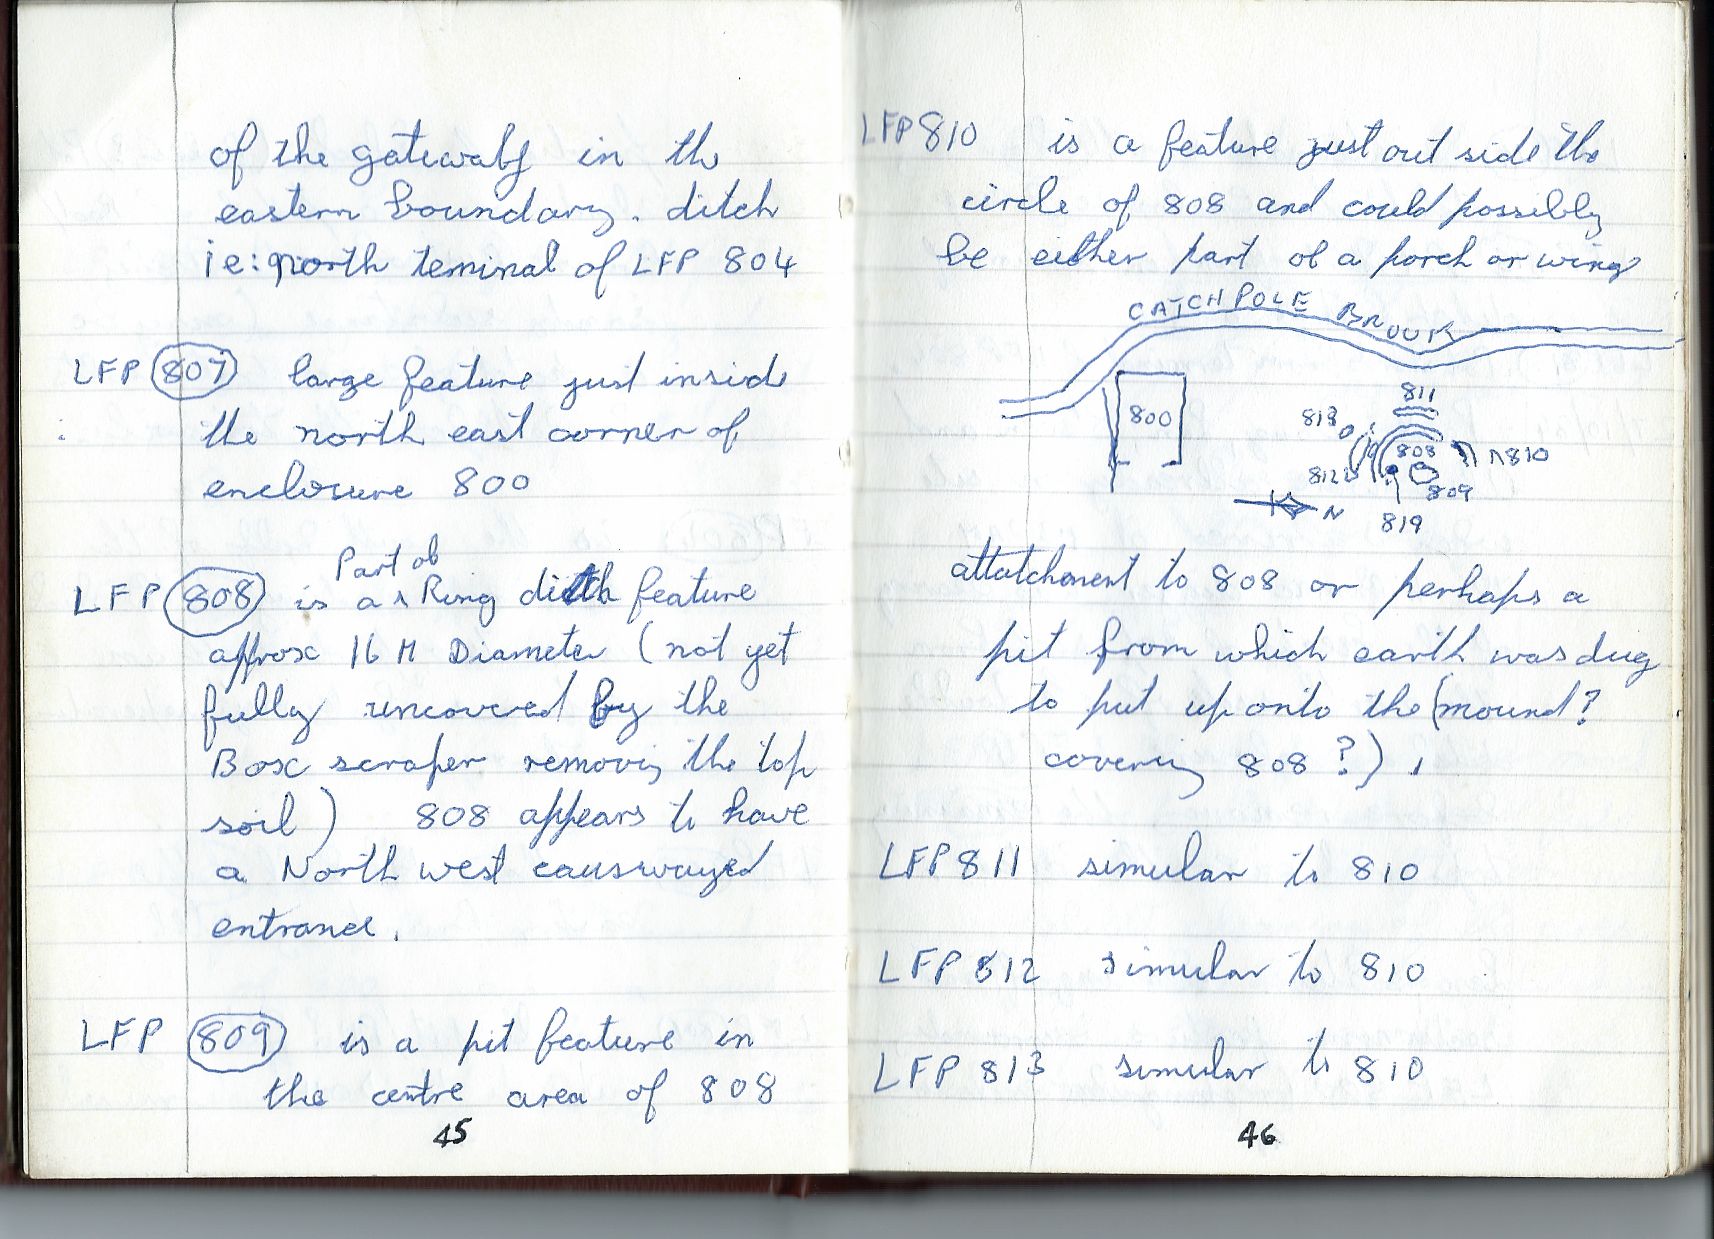 of the gateway in th
eastern boundary. ditch
ie: north teminal of LFP 804
LFP 807 large feature just inside
the north east corner of
enclosure 800
Part of
LFP 808 is a ^ Ring ditch feature
approx 16 M Diameter (not yet
fully uncovered by the
Box scraper removing the top
soil) 808 appears to have
a North west causwayed
entrance.
LFP 809 is a pit feature in
the centre area of 808
45
LFP 810 is a feature just out side the
circle of 808 and could possibly
be either part of a porch or wing
CATCHPOLE BROOK
811
800
813
808
810
812
809
N
819
attatchment to 808 or perhaps a
pit from which earth was dug
to put up onto the (mound?
covering 808?).
LFP 811 simular to 810
LFP 812 simular to 810
LFP 813 simular to 810
46